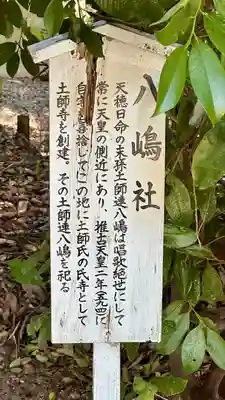 八嶋社
天穂日命の末孫土師連八嶋は唱歌絶世にして
常に天皇の側近にあり、推古天皇二年五九四に
自宅を喜捨してこの地に土師氏の氏寺として
土師寺を創建。その土師連八嶋を祀る